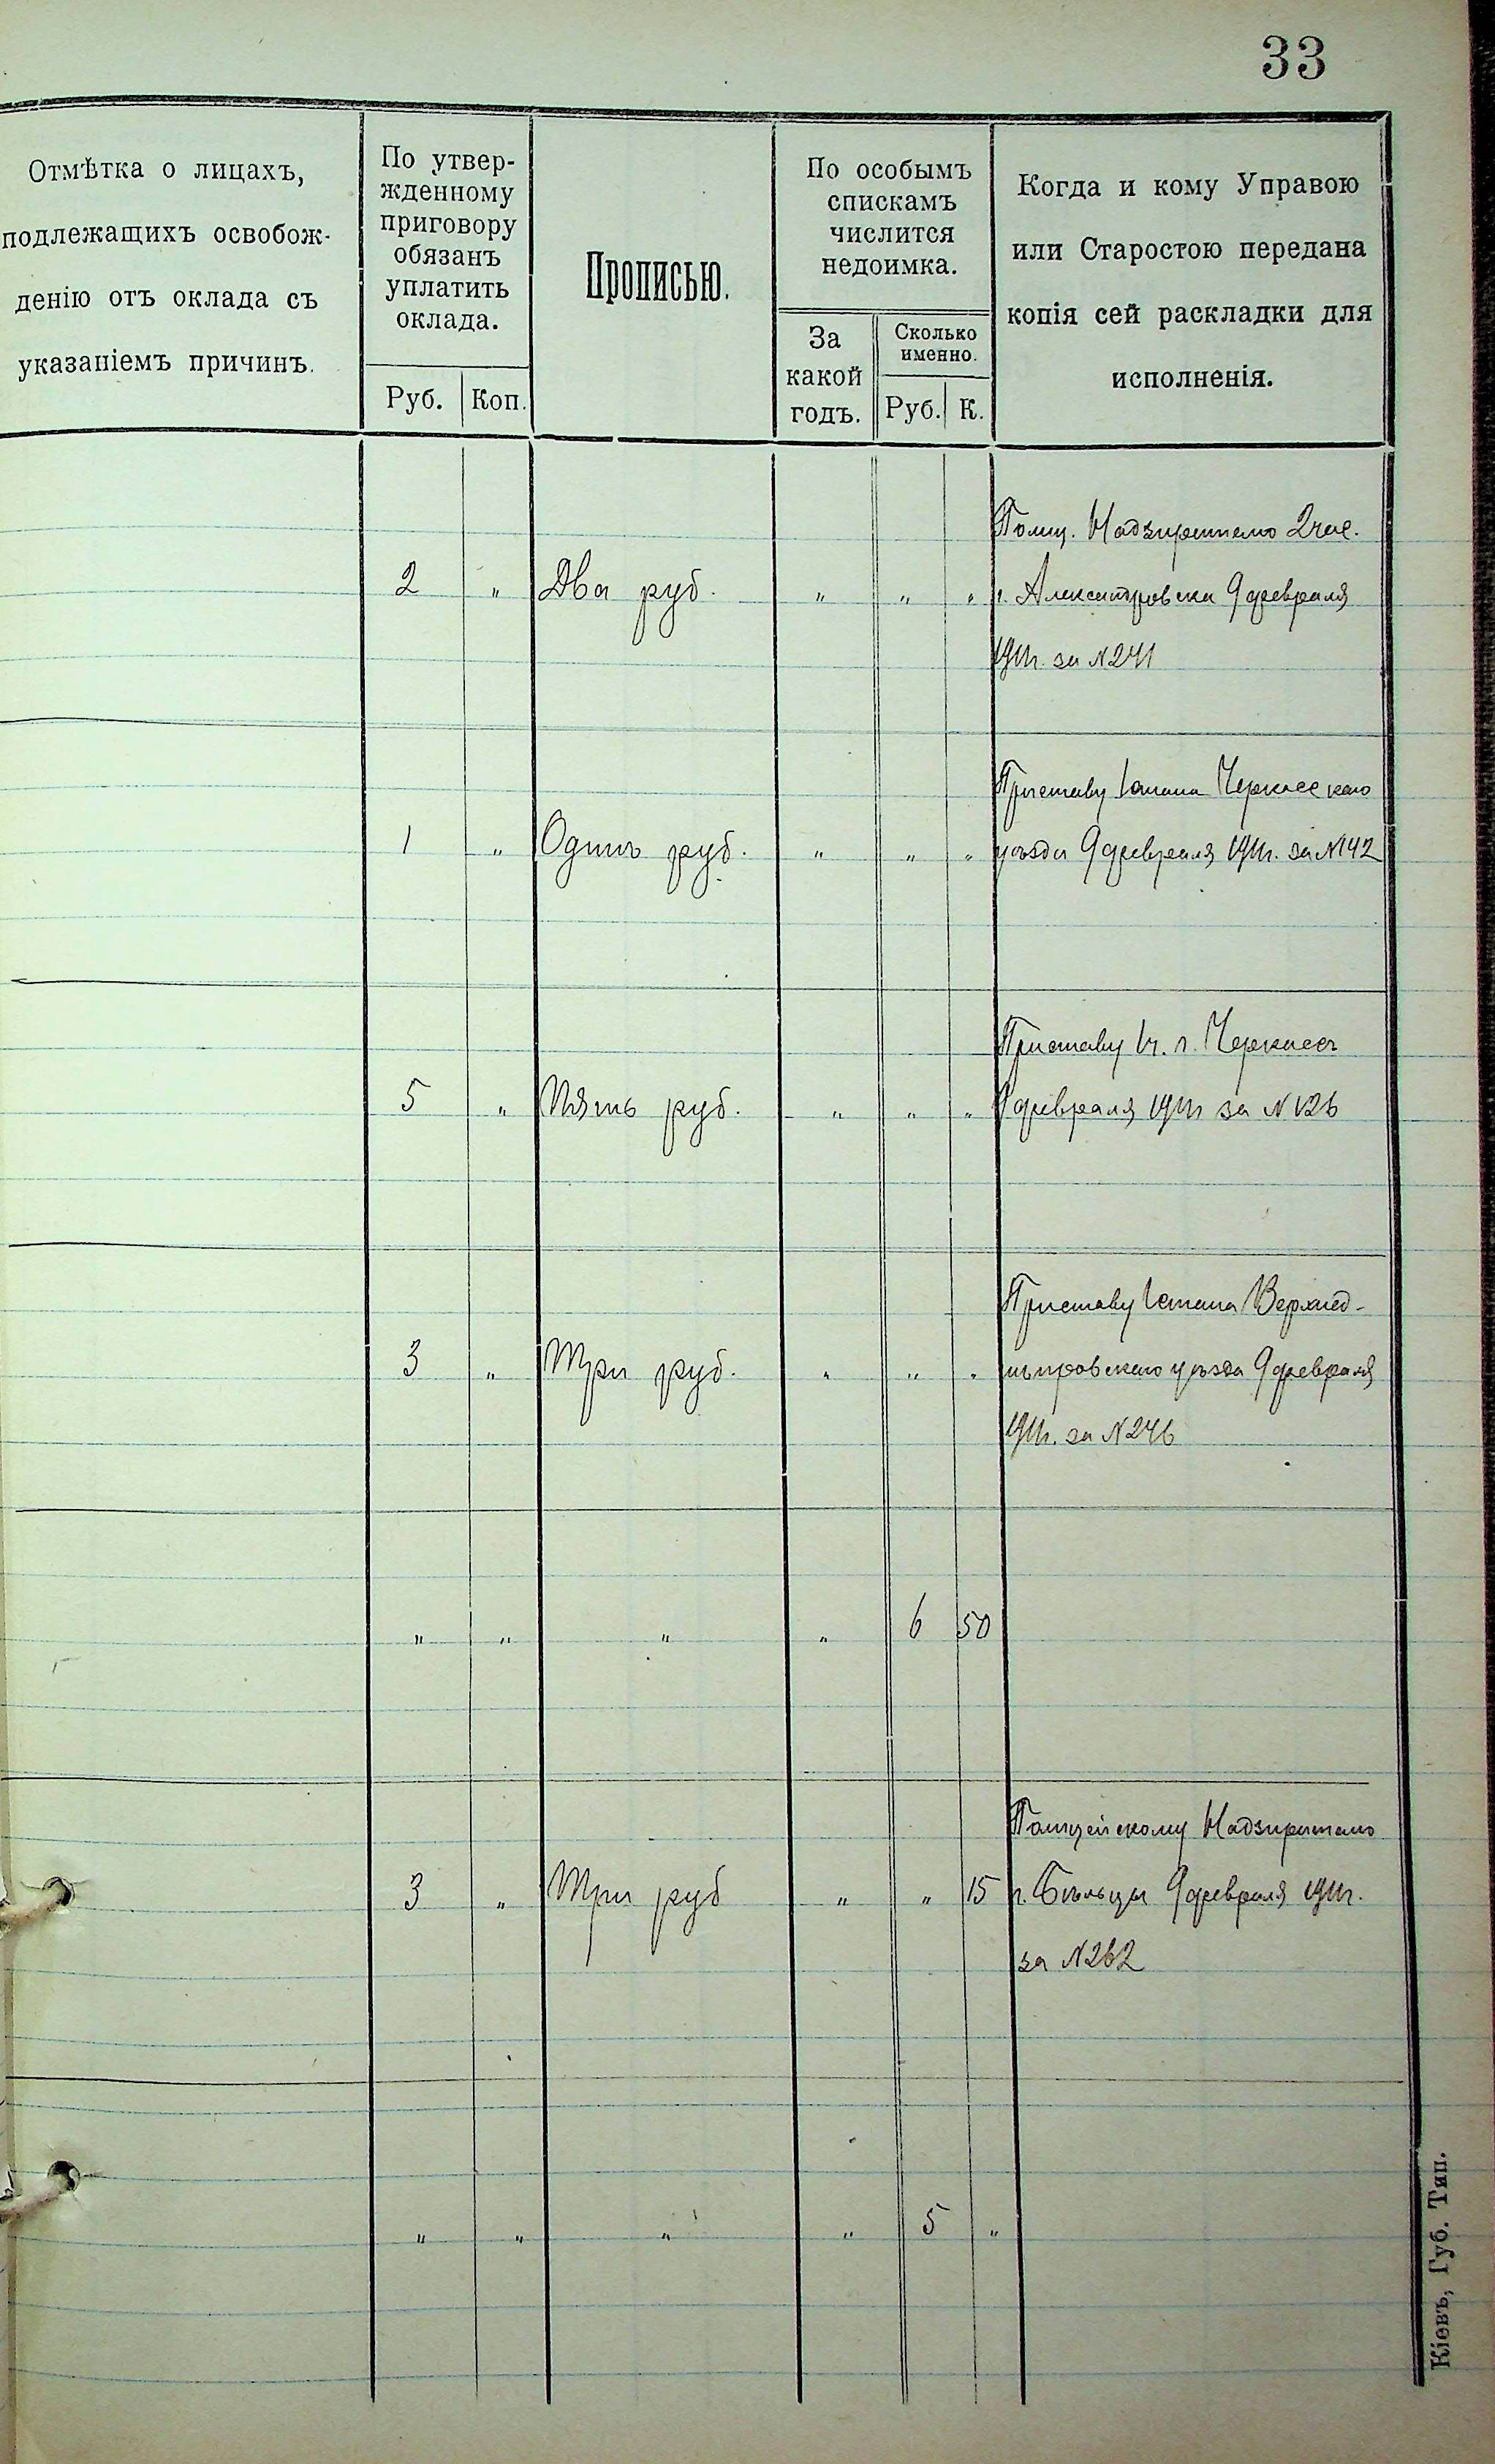 33
Отмѣтка о лицахъ,
подлежащихъ освобож-
денію отъ оклада съ
указаніемъ причинъ.
По утвер-
жденному
приговору
обязанъ
уплатить
оклада.
Руб. Коп.
Прописью.
По особымъ
спискамъ
числится
недоимка.
За
какой
годъ.
Сколько
именно.
Руб. К.
Когда и кому Управою
или Старостою передана
копія сей раскладки для
исполненія.
Полиц. Надзирателю 2 час.
2 " Два руб. " " " г. Александровска 9 февраля
1911г. за N 241
Приставу 1 стана Черкасскаго
1 " Одинъ руб. " " " уѣзда 9 февраля 1911г. за N 142
Приставу 1ч. г. Черкассъ
5 " Пять руб. " " " 9 февраля 1911г за N 126
Приставу 1 стана Верхнед-
3 " Три руб. " " " нѣпровскаго уѣзда 9 февраля
1911г. за N 246
" " " " 6 50
Полицейскому Надзирателю
3 " Три руб " " 15 г. Бѣльцы 9 февраля 1911г.
за N 262
" " " " 5 "
Кіевъ, Губ. Тип.